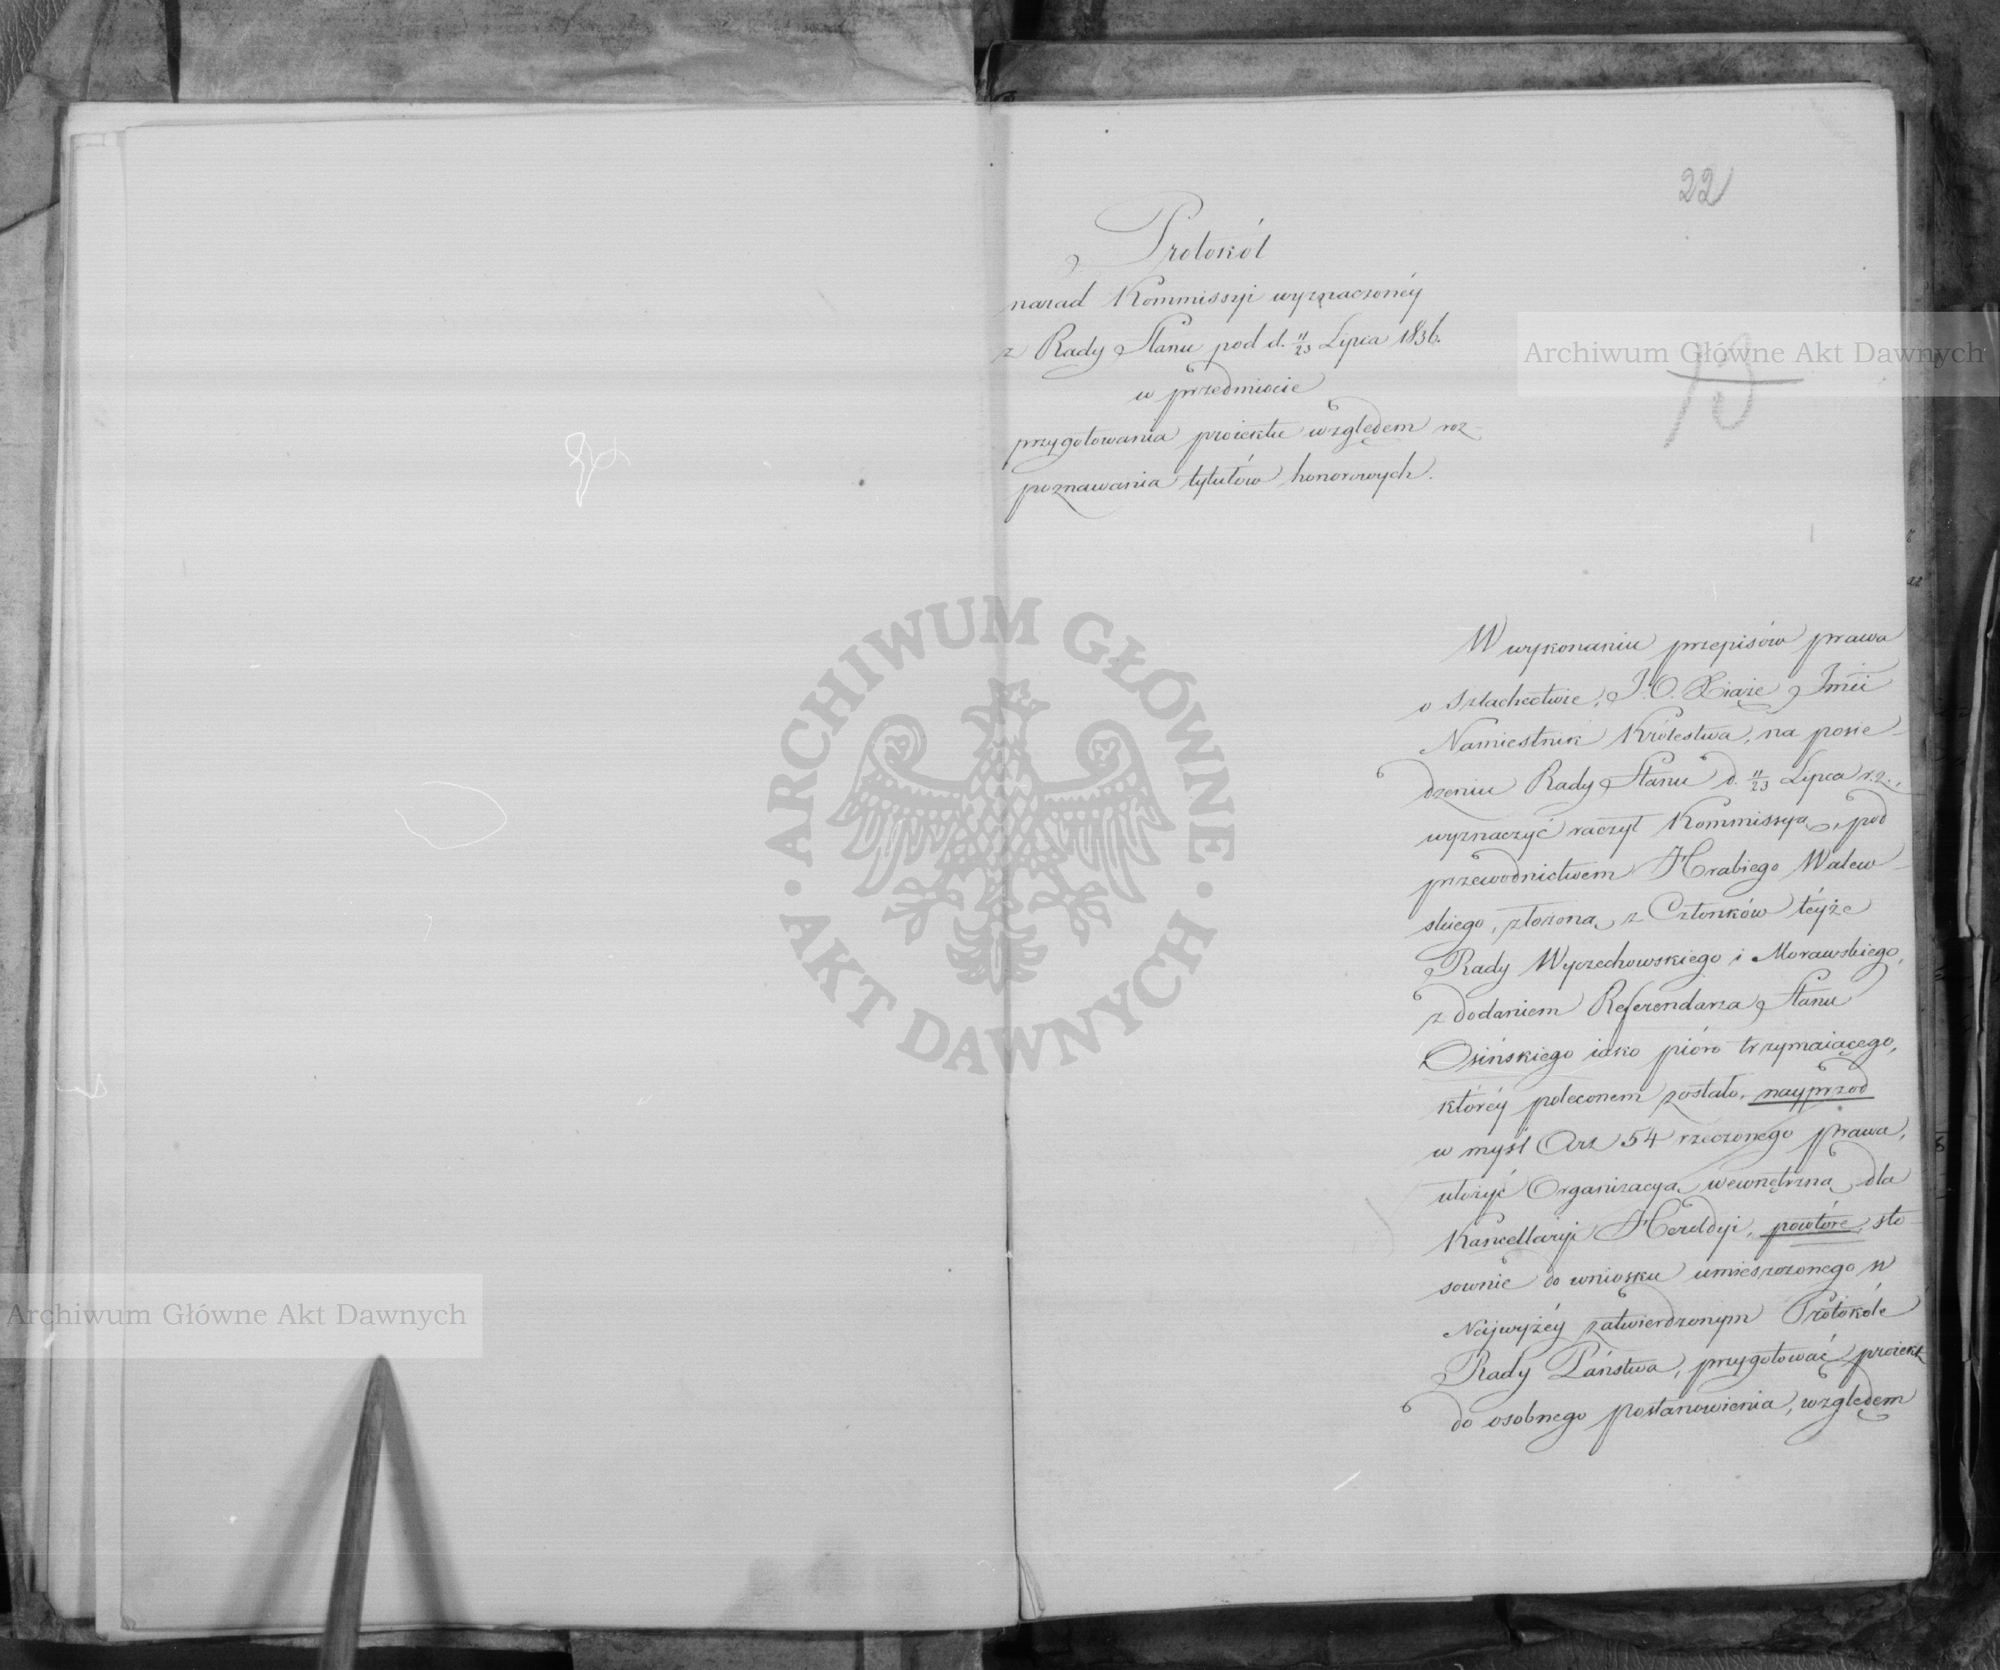 22
Protokół
narad Kommissyi wyznaczonéy
z Rady Stanu pod d. 11/23 Lipca 1836.
w przedmiocie
przygotowania proiektu względem roz-
poznawania tytułów honorowych.
W wykonaniu przepisów prawa
o Szlachectwie, J. O. Xiąże Jmći
Namiestnik Królestwa, na posie-
dzeniu Rady Stanu d. 11/23 Lipca r. z.,
wyznaczyć raczył Kommissyą, pod
przewodnictwem Hrabiego Walew-
skiego, złożoną z Członków téyże
Rady Wyczechowskiego i Morawskiego,
z dodaniem Referendarza Stanu
Osińskiego iako pióro trzymaiącego,
któréy poleconem zostało, nayprzod
w myśl Art 54 rzeczonego prawa,
ułożyć Organizacyą wewnętrzną dla
Kancellaryi Heroldyi, powtóre, sto-
sownie do wniosku umieszczonego w
Najwyżéy zatwierdzonym Protokóle
Rady Państwa, przygotować proiekt
do osobnego postanowienia, względem
Archiwum Główne Akt Dawnych
ARCHIWUM GŁÓWNE
· AKT DAWNYCH ·
Archiwum Główne Akt Dawnych